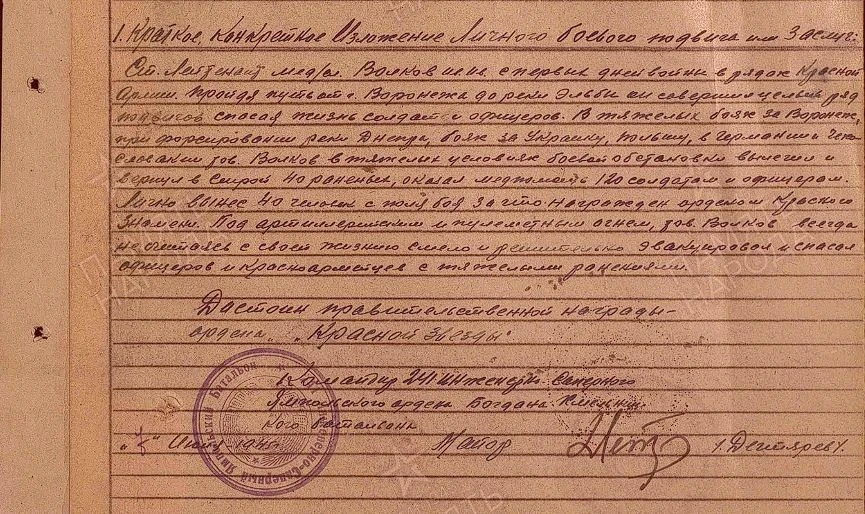 1. Краткое, конкретное изложение личного боевого подвига или заслуг:
Ст. Лейтенант мед/сл. Волков с первых дней войны в рядах Красной
Армии. Пройдя путь от г. Воронежа до реки Эльбы он совершил целый ряд
подвигов спасая жизнь солдат и офицеров. В тяжелых боях за Воронеж,
при форсировании реки Днепр, боях за Украину, Польшу, в Германии Чехо
словакии тов. Волков в тяжелых условиях боевой обстановки вылечил и
вернул в строй 40 раненых, оказал медпомощь 120 солдатам и офицерам.
Лично вынес 40 человек с поля боя за что награжден орденом Красного
Знамени. Под артиллерийским и пулеметным огнем, тов. Волков всегда
не считаясь с своей жизнию смело и решительно эвакуировал и спасал
офицеров и красноармейцев с тяжелыми ранениями.
Достоин правительственной награды-
ордена „Красной Звезды"
Командир 241 Инженерно Саперного
Ямпольского ордена Богдана Хмельниц
кого батальона
Июня 1945 Майор /. Дегтярев/.
Инженерно-Саперный Ямпольский Батальон